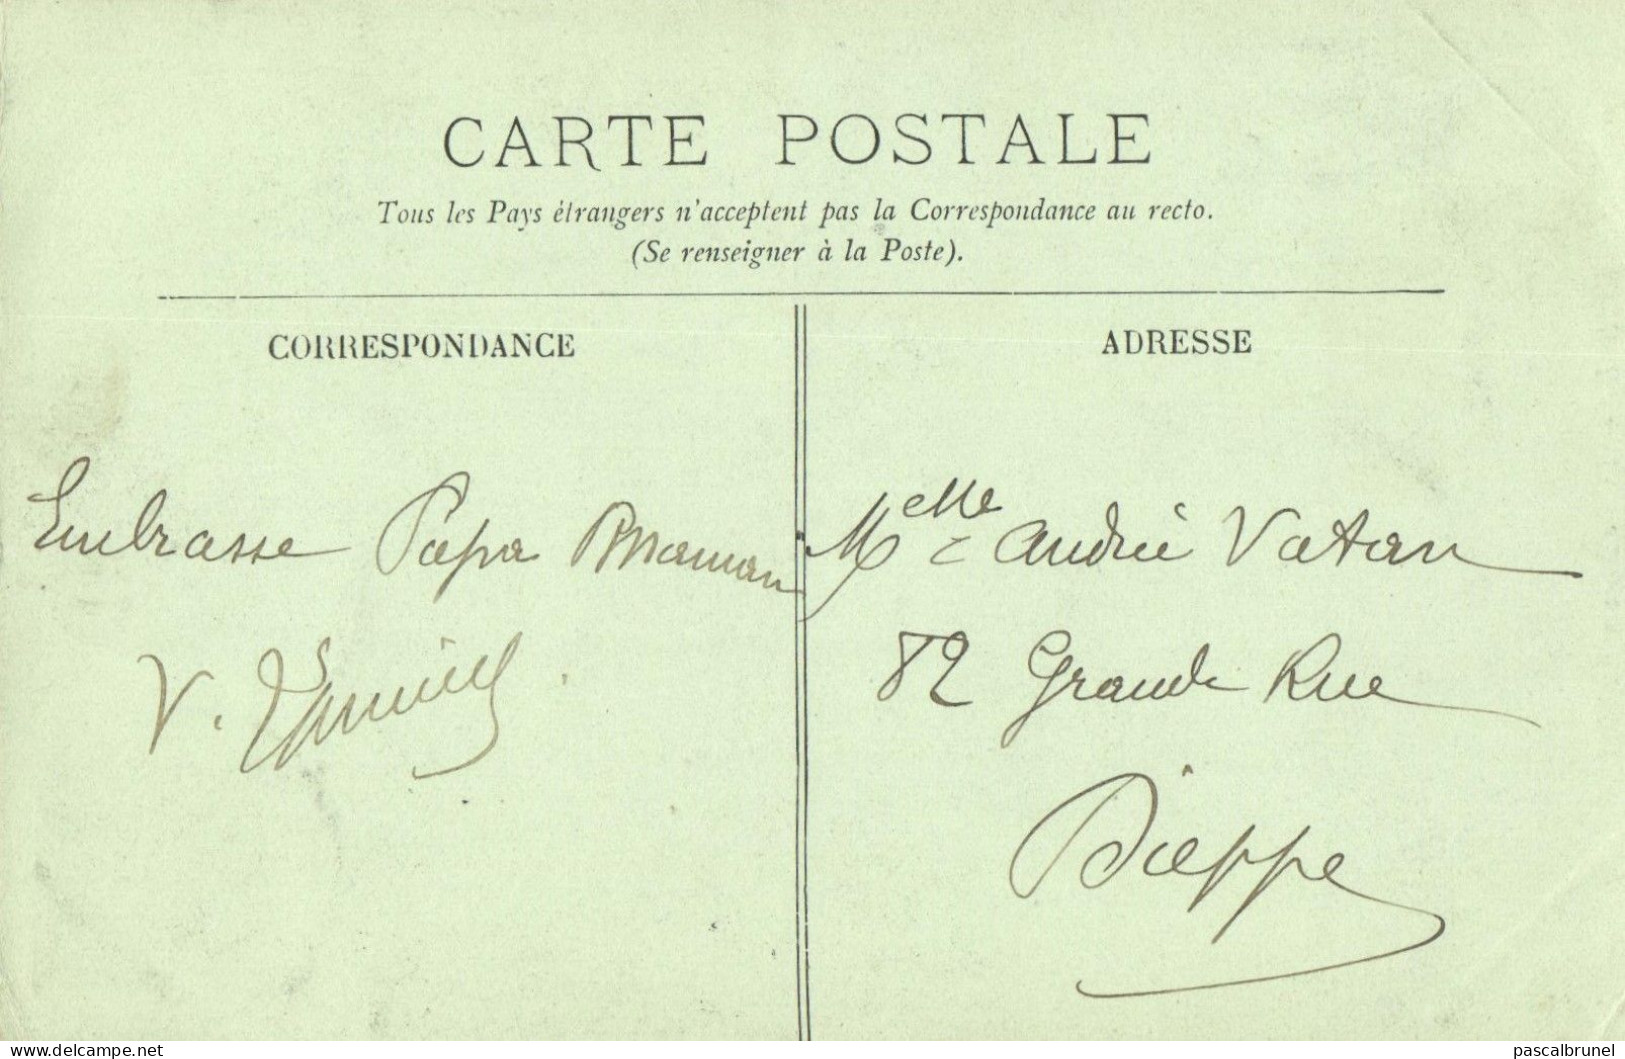 CARTE POSTALE
Tous les Pays étrangers n'acceptent pas la Correspondance au recto.
(Se renseigner à la Poste).
CORRESPONDANCE
ADRESSE
Embrasse Papa Maman
V.
Melle Andrée Vatan
82 Grande Rue
Dieppe
www.delcampe.net
pascalbrunel